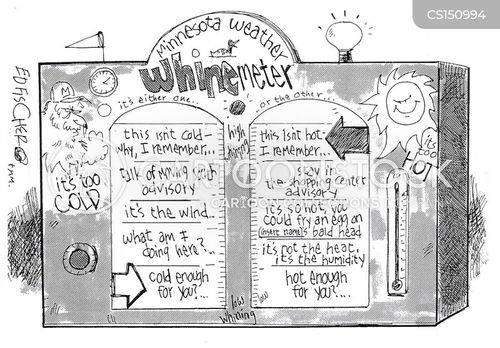 CS150994
Minnesota weather
whine meter
it's either one...
..or the other...
ED FISCHER
this isn't cold-
why, I remember...
talk of moving south
advisory
it's the wind..
what am I
doing here?..
cold enough
for you?...
high
whining
low
whining
this isn't hot..
I remember...
stay in
the shopping center
advisory
it's so hot, you
could fry an egg on
(insert name)'s bald head
it's not the heat,
it's the humidity
hot enough
for you?....
it's too
COLD
it's
too
HOT